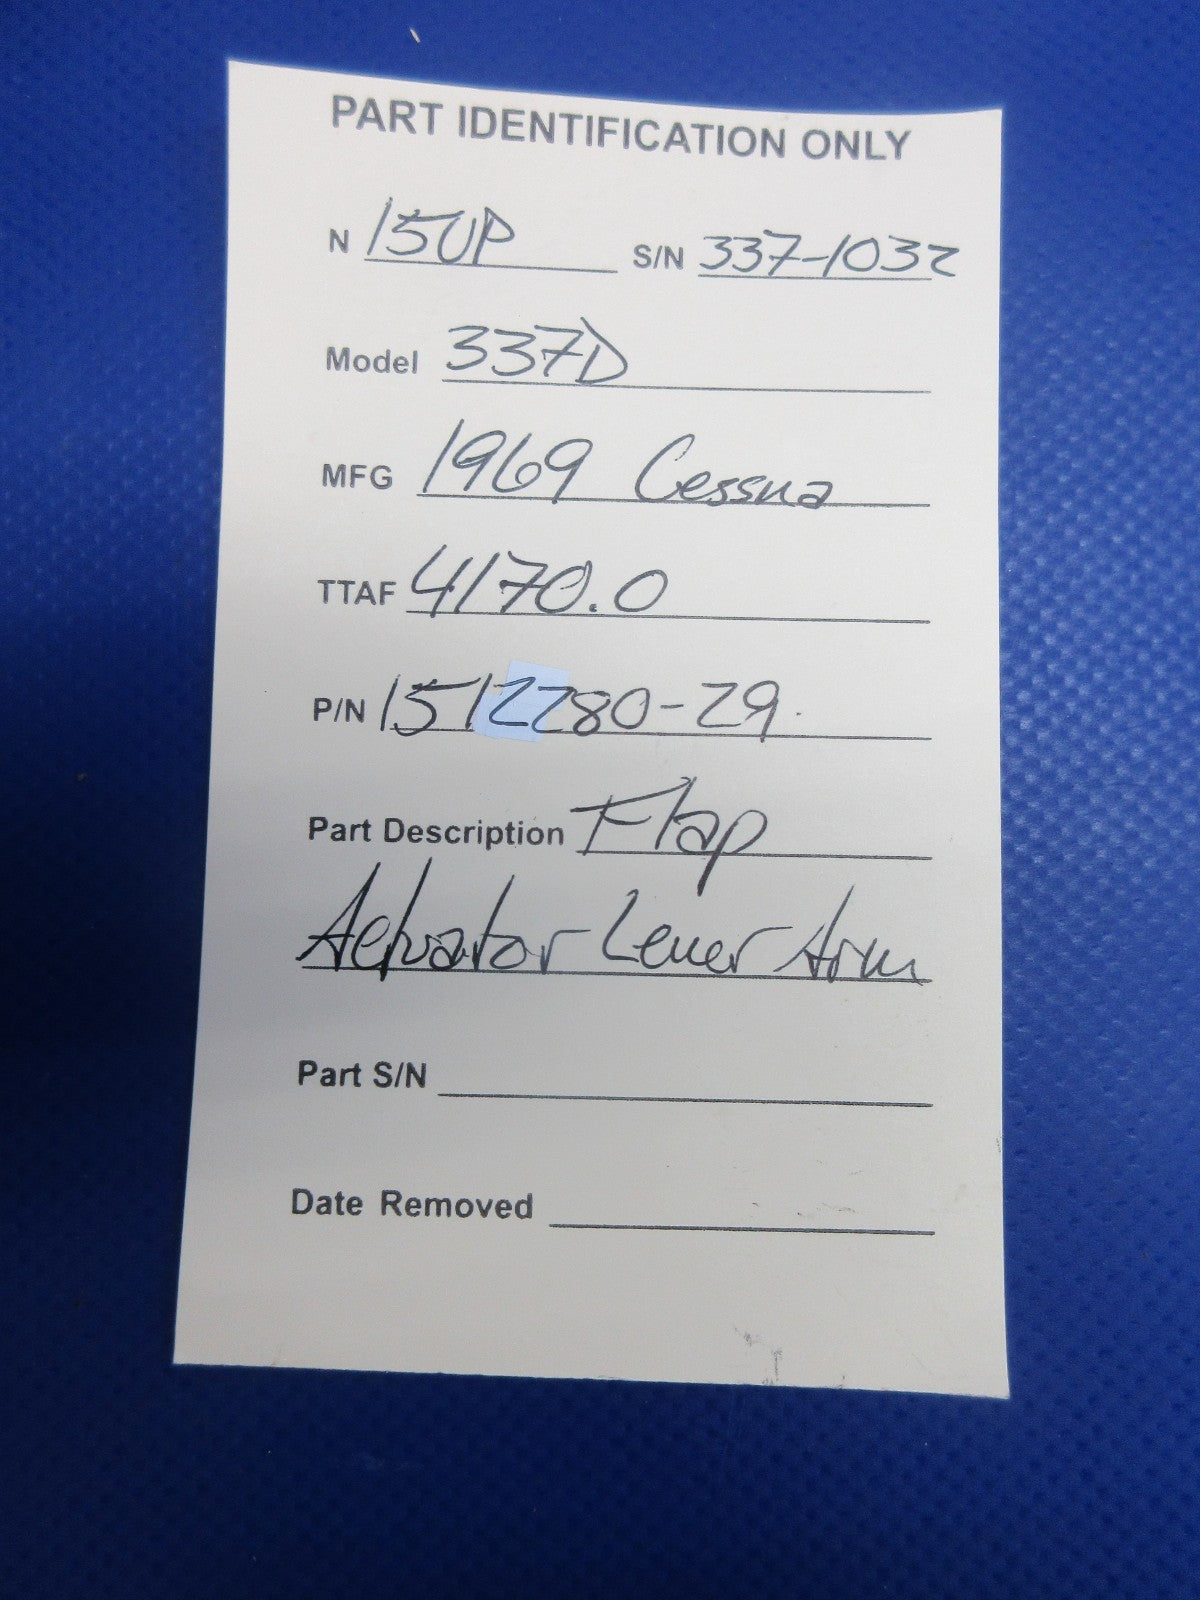 PART IDENTIFICATION ONLY
N 150P S/N 337-1032
Model 337D
MFG 1969 Cessna
TTAF 4170.0
P/N 1512280-29
Part Description Flap
Actuator Lever Arm
Part S/N
Date Removed